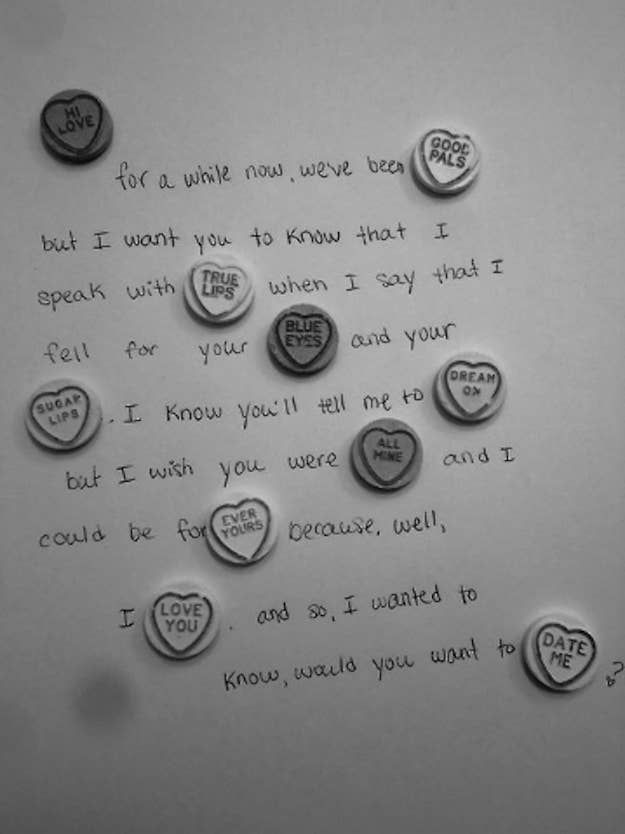 HI LOVE
for a while now, we've been GOOD PALS
but I want you to know that I
speak with TRUE LIPS when I say that I
fell for your BLUE EYES and your
SUGAR LIPS . I know you'll tell me to DREAM ON
but I wish you were ALL MINE and I
could be for EVER YOURS because, well,
I LOVE YOU . and so, I wanted to
know, would you want to DATE ME ?